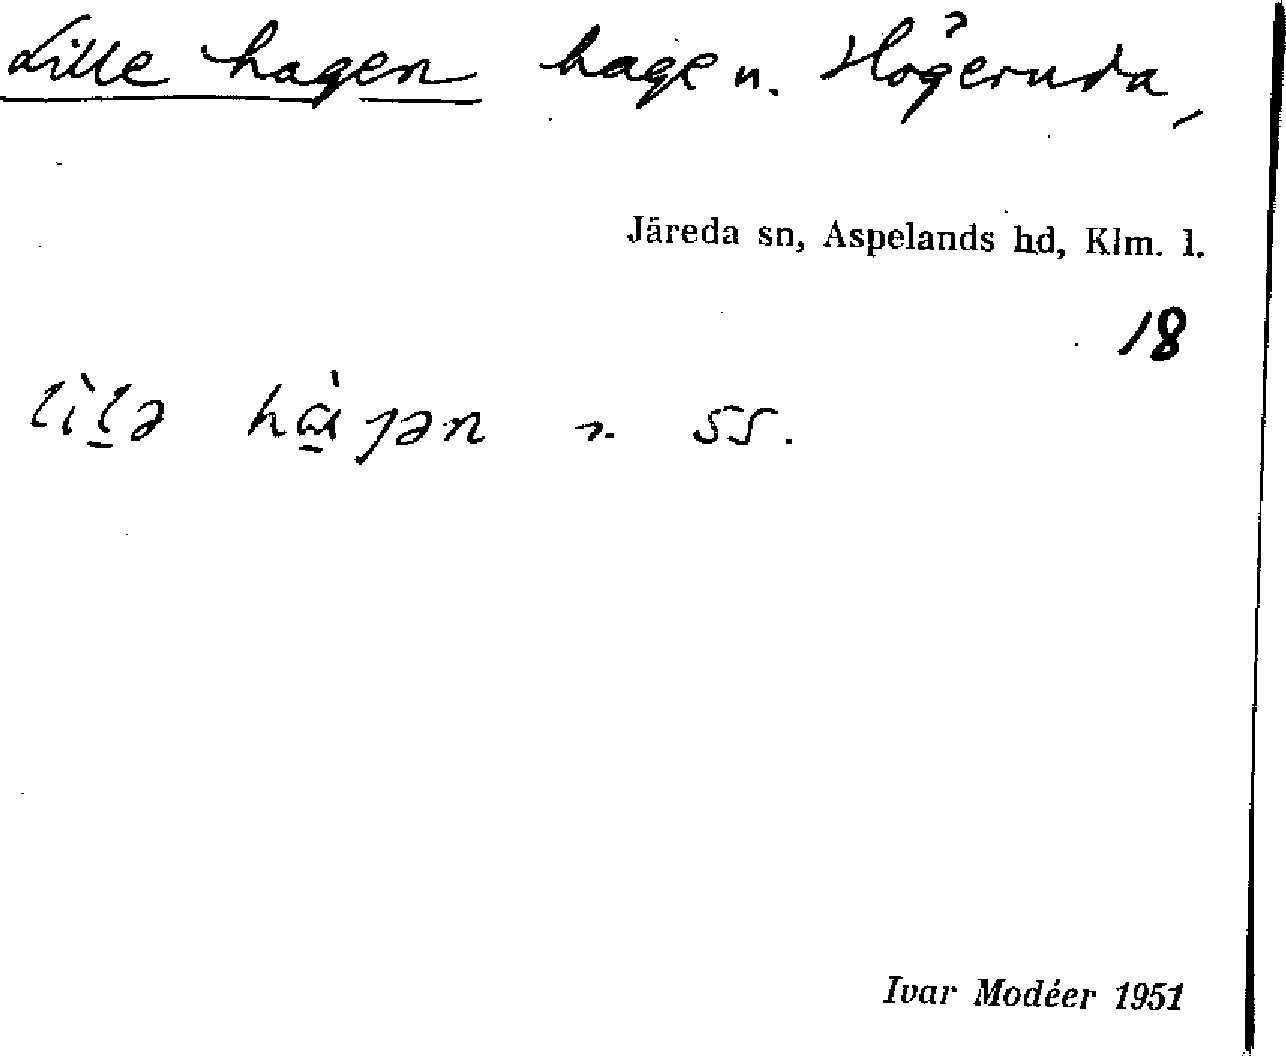 Lille hagen hage n. Högeruda,
Järeda sn, Aspelands hd, Klm. l.
18
lìl̠ə hɑ̠̀ɡən n. ss.
Ivar Modéer 1951